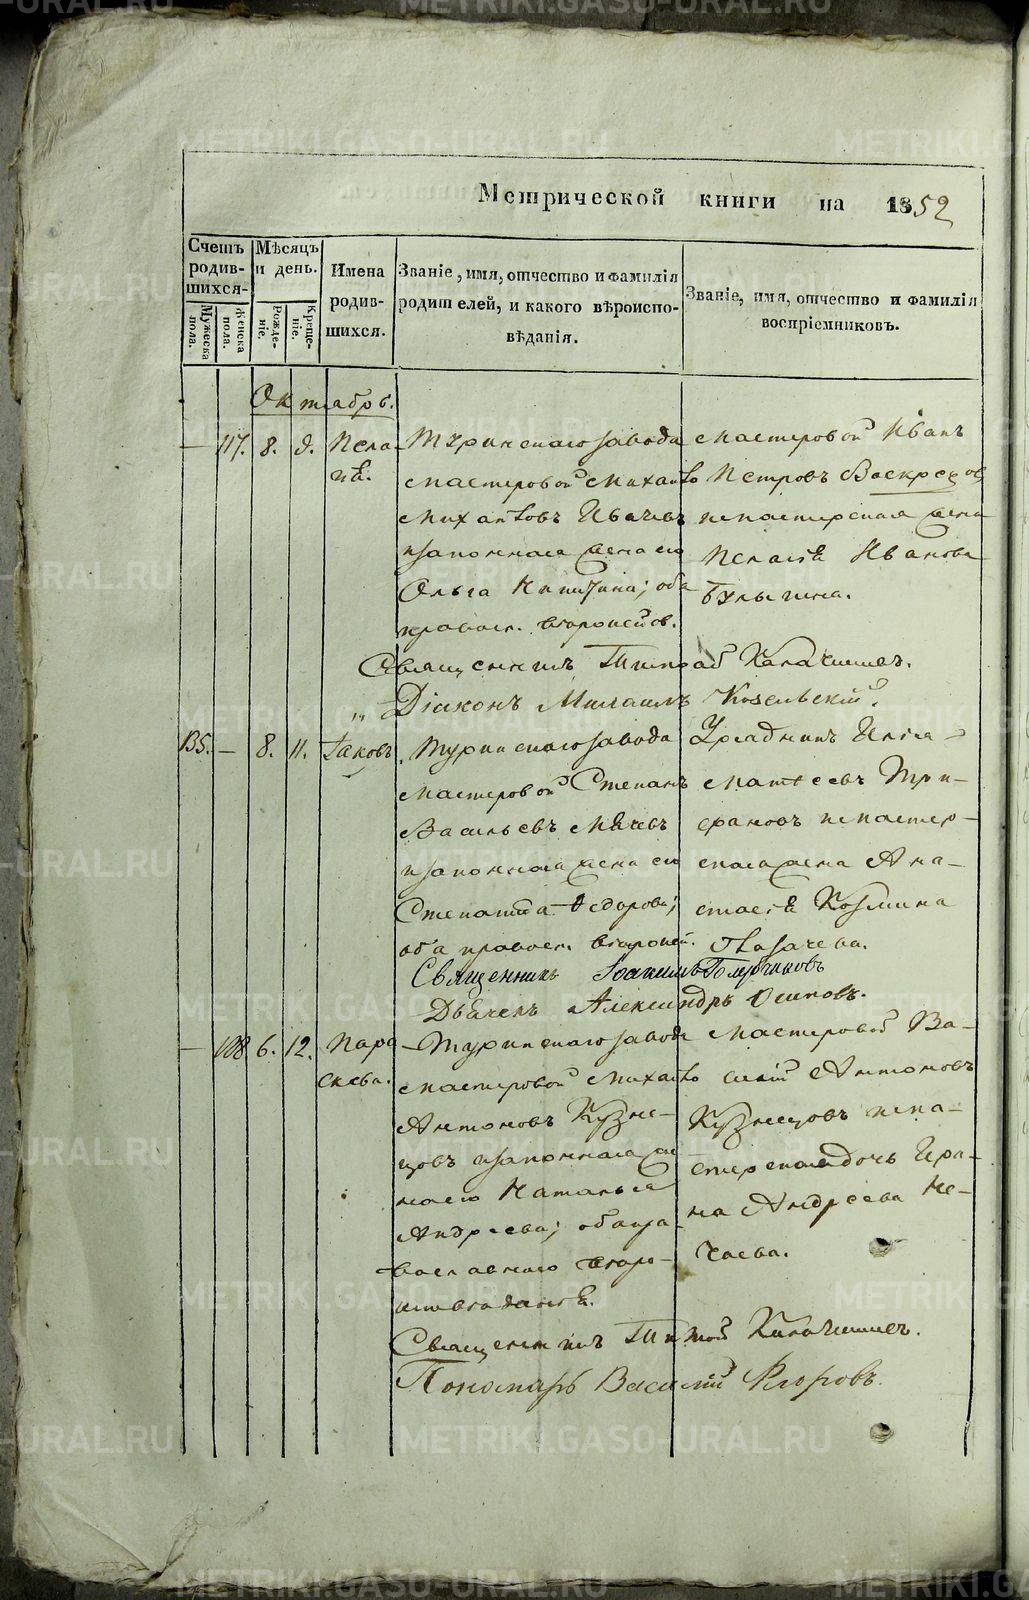 METRIKI.GASO-URAL.RU
Метрической книги на 1852
Счетъ родив-шихся.
Мѣсяцъ и день.
Мужеска пола.
Женска пола.
Рожде-ніе.
Креще-ніе.
Имена родив-шихся.
Званіе, имя, отчество и фамилія
родителей, и какого вѣроиспо-
вѣданія.
Званіе, имя, отчество и фамилія
воспріемниковъ.
Октябрь.
— 117. 8. 9. Пела-
гія.
Туринскаго завода
мастеровой Михаило
Михаиловъ
и законная жена его
Ольга Никитина; оба
правосл. вѣроисп.
мастеровой Иванъ
Петровъ
и мастерская жена
Пелагія Иванова
Булыгина.
Священникъ Калачниковъ.
Діаконъ Михаилъ Козельскій.
135. — 8. 11. Іаковъ
Туринскаго завода
мастеровой Степанъ
Васильевъ Мячевъ
и законная жена его
Степанида Ѳедорова;
оба правосл. вѣроисп.
Урядникъ Илья
Матѳеевъ Три-
фановъ и мастер-
ская жена Ана-
стасія Козмина
Священникъ Іоакимъ
Дьячекъ Александръ Осиповъ.
— 118. 6. 12. Пара
скева.
Туринскаго завода
мастеровой Михаило
Антоновъ Кузне-
цовъ и законная же
на его Наталья
Андреева; оба пра
вославнаго вѣро-
исповѣданія.
мастеровой Ва-
силій Антоновъ
Кузнецовъ и ма-
стерская дочь Ири-
на Андреева Не-
чаева.
Священникъ
Пономарь Василій Флоровъ.